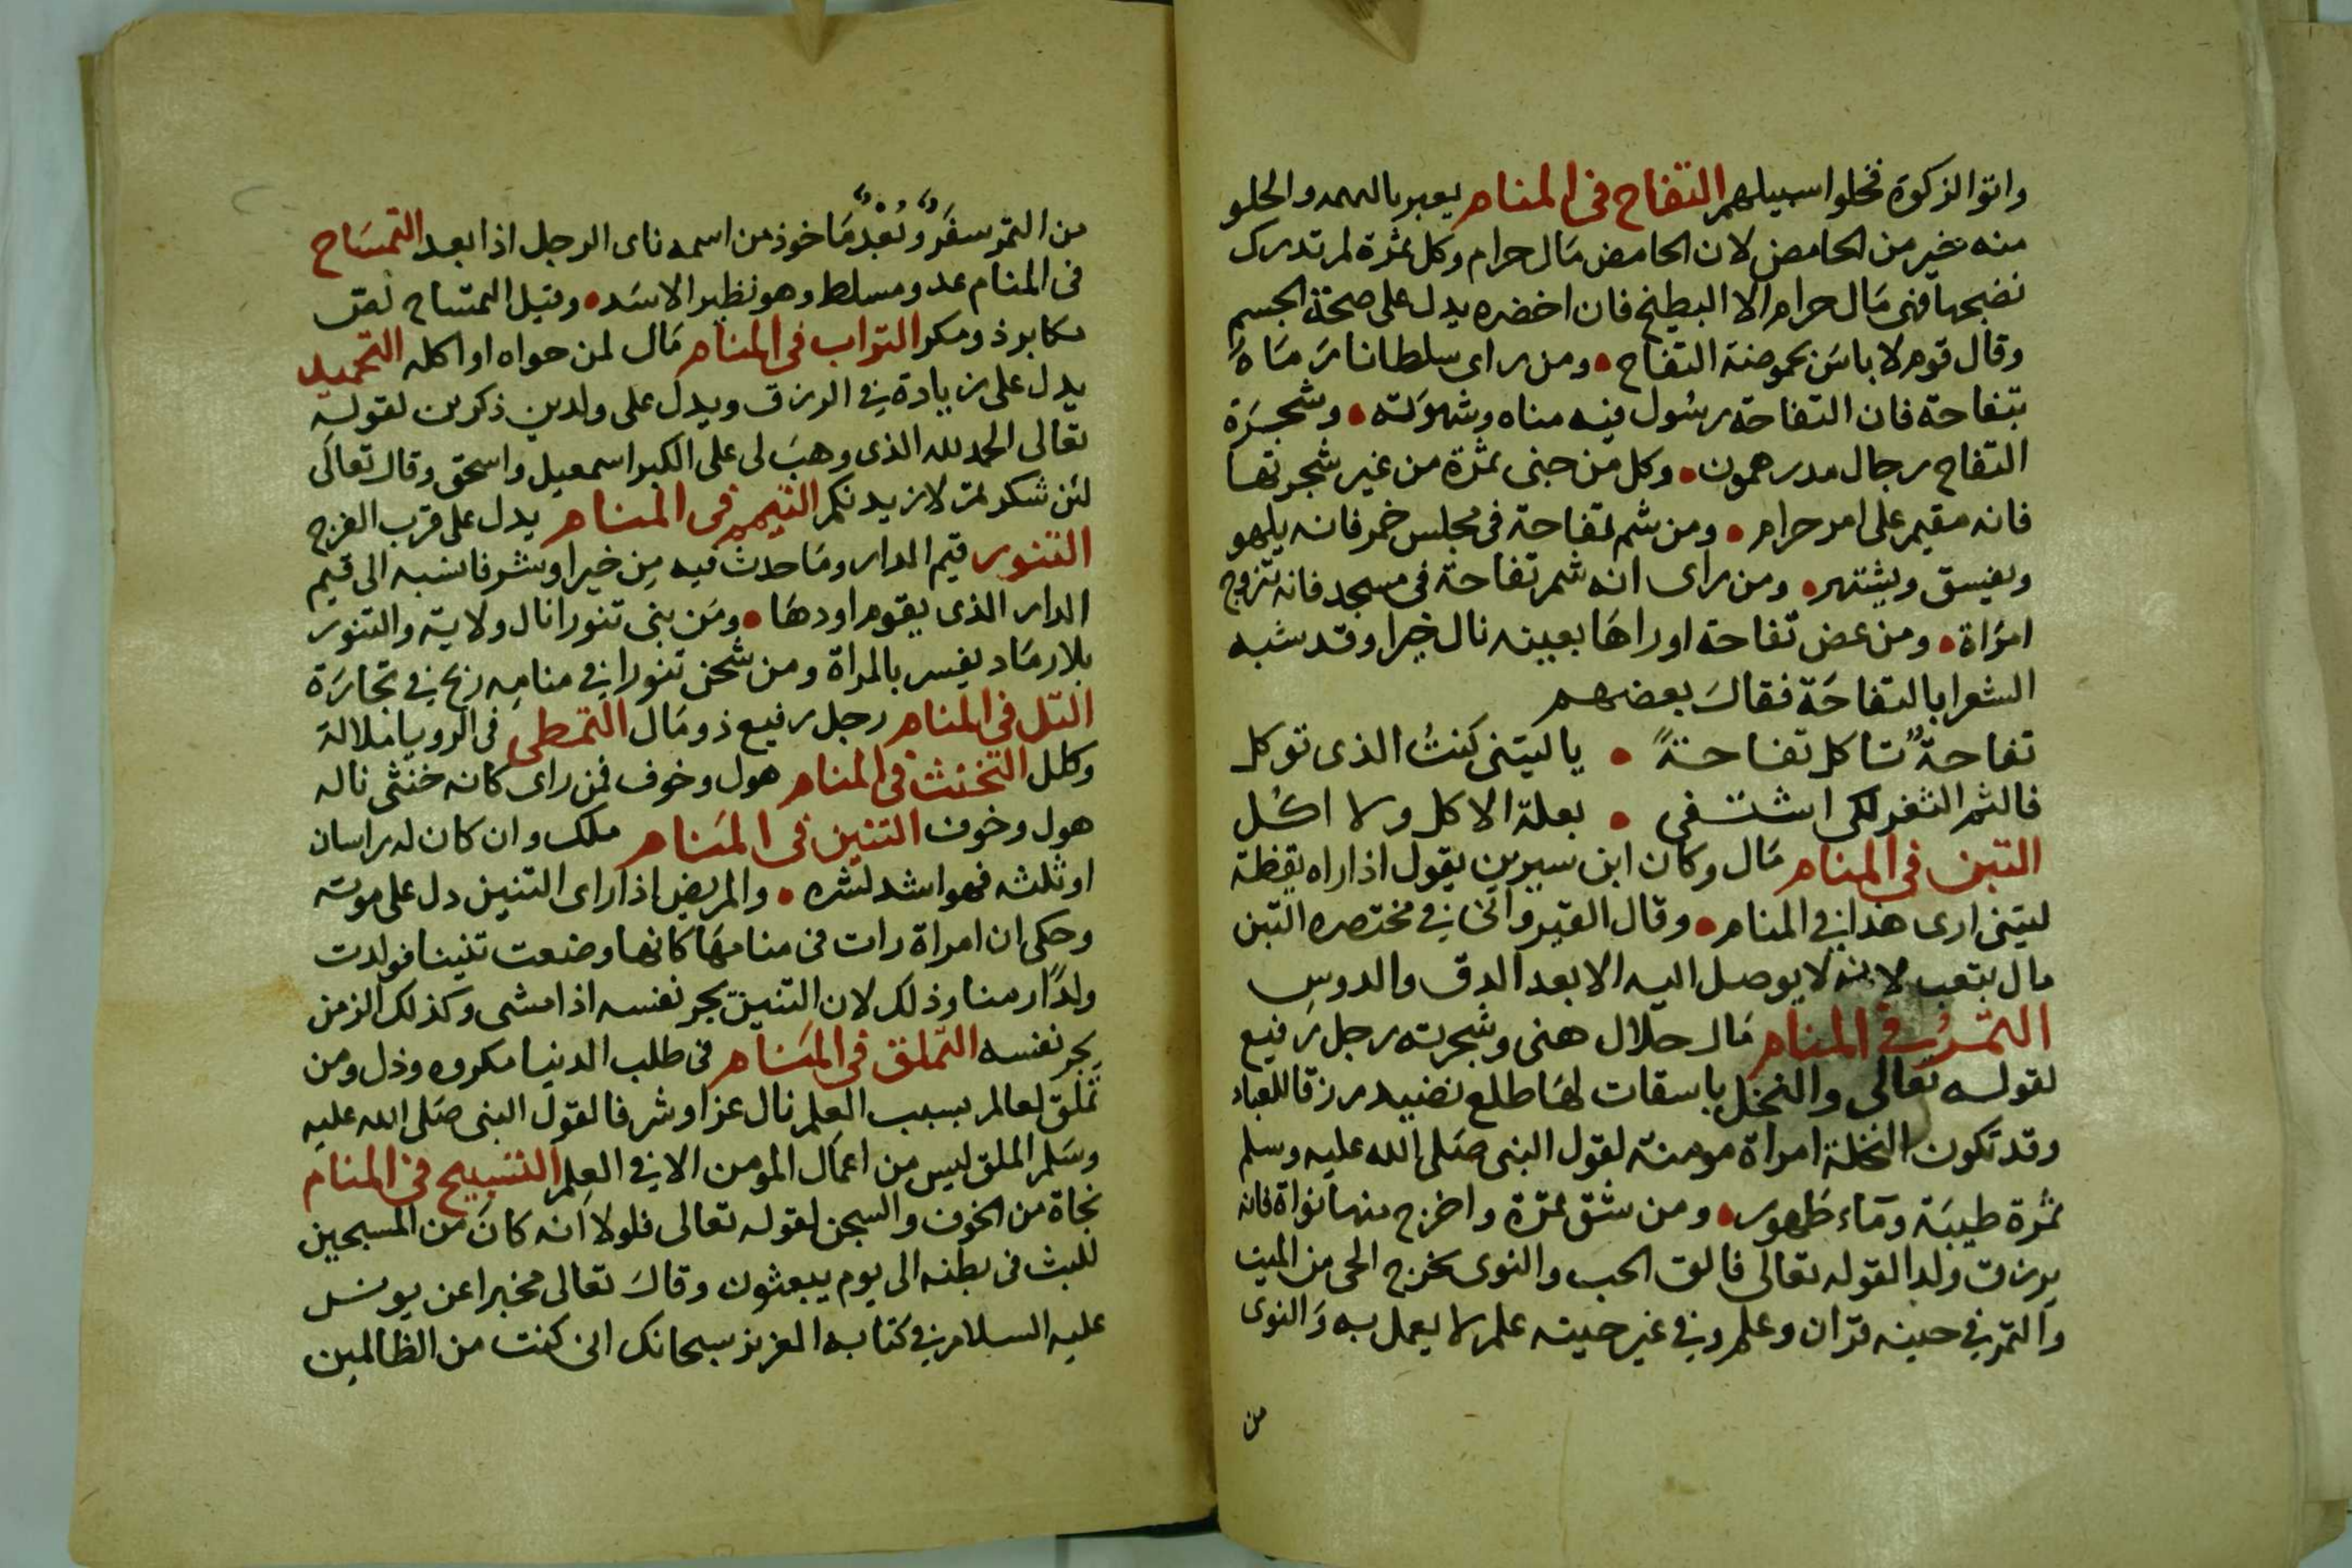 واتوا الزكوة فخلوا سبيلهم التفاح فى المنام يعبر بالهمه والحلو
منه خير من الحامض لان الحامض مَال حرام وكل ثمرة لم تدرك
نضجها فهى مَال حرام الا البطيخ فان اخضره يدل على صحة الجسم
وقال قوم لا باسَ بحموضة التفاح • ومن راى سلطانا رَمَاهُ
بتفاحة فان التفاحة رسُول فيه مناه وشهوته • وشجَرة
التفاح رجال مدرهمون • وكل من جنى ثمرة من غير شجرتها
فانه مقيم على امر حرام • ومن شم تفاحة فى مجلس خمر فانه يلهو
ويفيسق ويشتهر • ومن راى انه شم تفاحة فى مسجد فانه تزوج
امرَاة • ومن عض تفاحة او راهَا بعينه نال خيرا وقد شبه
الشعرا بالتفاحَة فقالَ بعضهم
تفاحةٌ تاكل تفاحةً • يا ليتنى كنتُ الذى توكل
فالثم الثغر لكى اشتفى • بعلة الاكل ولا اكُل
التبن فى المنام مَال وكان ابن سيرين يقول اذا راه يقظة
ليتنى ارى هذا فى المنام • وقال القيروانى فى مختصره التبن
مال بتعب لانه لا يوصل اليه الا بعد الدق والدوسِ
التمرُ فى المنام مَال حلال هنى وشجرته رجل رَفيع
لقوله تعالى والنخل باسقات لهَا طلع نضيد رزقا للعباد
وقد تكون النخلة امراة مومنة لقول النبى صَلى الله عليه وسلم
ثمُرة طيبَة ومَآء طَهور • ومن شق تمرَة واخرج منها نواة فانه
يرزق ولدا لقوله تعالى فالق الحب والنوى يخرج الحى من الميت
وَالتمر فى حينه قرَان وعلم وفى غير حينه علم لا يعمل به وَالنوى
من
من التمر سفَرٌ وبُعْدٌ مَاخوذ من اسمه ناى الرجل اذا بعد التمسَاح
فى المنام عدو مسلط وهو نظير الاسَد • وقيل التمساح لص
مكابر ذو مكر التراب فى المنام مَال لمن حواه او اكله التحميد
يدل على زيادة فى الرزق ويدل على ولدين ذكرين لقوله
تعالى الحمد لله الذى وهبَ لى على الكبر اسمعيل واسحق وقال تعالَى
لئن شكرتم لازيدنكم التيمم فى المنام يدل على قرب الفرج
التنور قيم الدار ومَا حدث فيه مِن خير او شر فانسبه الى قيم
الدار الذى يقوم اودهَا • ومَن بنى تنورا نال ولاية والتنور
بلا رمَاد يفسر بالمراة ومن شحن تنورا فى منامِه ربح فى تجارَة
التل فى المنام رجل رفيع ذو مَال التمطى فى الرويا ملالة
وكلل التخنث فى المنام هول وخوف فمن راى كانه خنثى ناله
هول وخوف التنين فى المنَام ملك وان كان له راسان
او ثلثه فهو اشد لشره • والمريض اذا راى التنين دل على موته
وحكى ان امراة رات فى منامهَا كانها وضعت تنينا فولدت
ولدًا زمنا وذلك لان التنين يجر نفسه اذا مشى وكذلك الزمن
يجر نفسه التملق فى المنَام فى طلب الدنيا مكروه وذل ومن
تملق لعالم بسبب العلم نال عزا وشرفا لقول النبى صَلى الله عليه
وسَلم الملق ليس من اعمَال المومن الا فى العِلم التسبيح فى المنام
نجاة من الخوف والسجن لقوله تعالى فلولا انه كانَ من المسبحين
للبث فى بطنه الى يوم يبعثون وقالَ تعالى مخبرا عن يونس
عليه السلام فى كتابه العزيز سبحانك انى كنت من الظالمين